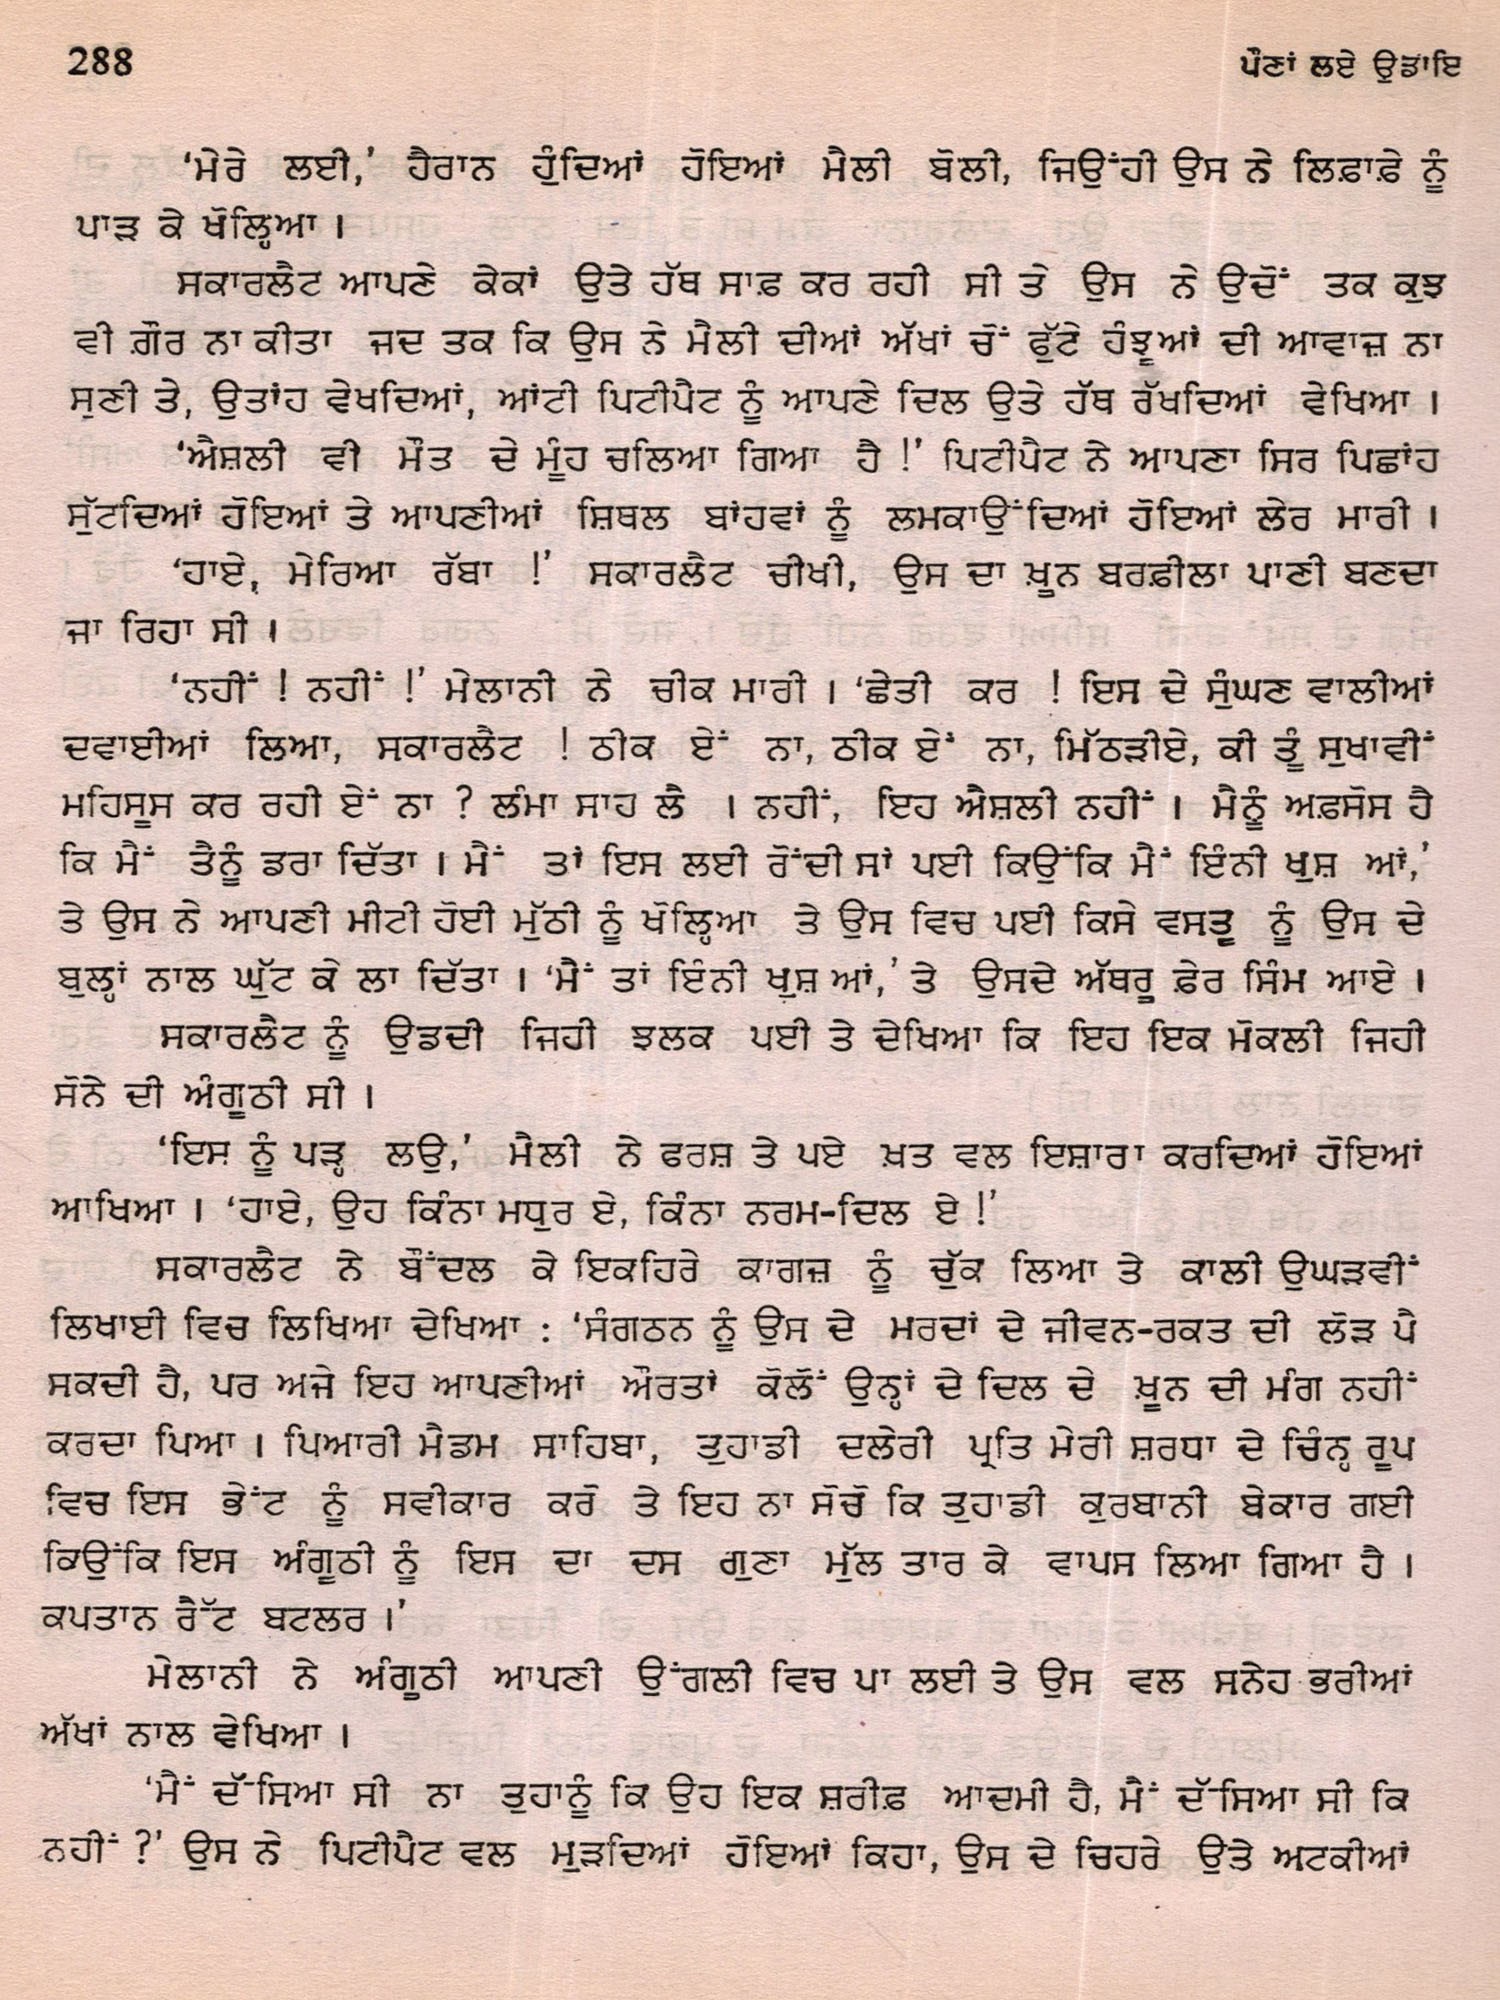 288
ਪੌਣਾਂ ਲਏ ਉਡਾਇ
‘ਮੇਰੇ ਲਈ,’ ਹੈਰਾਨ ਹੁੰਦਿਆਂ ਹੋਇਆਂ ਮੈਲੀ ਬੋਲੀ, ਜਿਉਂਹੀ ਉਸ ਨੇ ਲਿਫ਼ਾਫ਼ੇ ਨੂੰ
ਪਾੜ ਕੇ ਖੋਲ੍ਹਿਆ ।
ਸਕਾਰਲੈਟ ਆਪਣੇ ਕੇਕਾਂ ਉਤੇ ਹੱਥ ਸਾਫ਼ ਕਰ ਰਹੀ ਸੀ ਤੇ ਉਸ ਨੇ ਉਦੋਂ ਤਕ ਕੁਝ
ਵੀ ਗ਼ੌਰ ਨਾ ਕੀਤਾ ਜਦ ਤਕ ਕਿ ਉਸ ਨੇ ਮੈਲੀ ਦੀਆਂ ਅੱਖਾਂ ਚੋਂ ਫੁੱਟੇ ਹੰਝੂਆਂ ਦੀ ਆਵਾਜ਼ ਨਾ
ਸੁਣੀ ਤੇ, ਉਤਾਂਹ ਵੇਖਦਿਆਂ, ਆਂਟੀ ਪਿਟੀਪੈਟ ਨੂੰ ਆਪਣੇ ਦਿਲ ਉਤੇ ਹੱਥ ਰੱਖਦਿਆਂ ਵੇਖਿਆ ।
‘ਐਸ਼ਲੀ ਵੀ ਮੌਤ ਦੇ ਮੂੰਹ ਚਲਿਆ ਗਿਆ ਹੈ !’ ਪਿਟੀਪੈਟ ਨੇ ਆਪਣਾ ਸਿਰ ਪਿਛਾਂਹ
ਸੁੱਟਦਿਆਂ ਹੋਇਆਂ ਤੇ ਆਪਣੀਆਂ ਸ਼ਿਥਲ ਬਾਂਹਵਾਂ ਨੂੰ ਲਮਕਾਉਂਦਿਆਂ ਹੋਇਆਂ ਲੇਰ ਮਾਰੀ ।
‘ਹਾਏ, ਮੇਰਿਆ ਰੱਬਾ !’ ਸਕਾਰਲੈਟ ਚੀਖੀ, ਉਸ ਦਾ ਖ਼ੂਨ ਬਰਫ਼ੀਲਾ ਪਾਣੀ ਬਣਦਾ
ਜਾ ਰਿਹਾ ਸੀ ।
‘ਨਹੀਂ ! ਨਹੀਂ !’ ਮੇਲਾਨੀ ਨੇ ਚੀਕ ਮਾਰੀ । ‘ਛੇਤੀ ਕਰ ! ਇਸ ਦੇ ਸੁੰਘਣ ਵਾਲੀਆਂ
ਦਵਾਈਆਂ ਲਿਆ, ਸਕਾਰਲੈਟ ! ਠੀਕ ਏਂ ਨਾ, ਠੀਕ ਏਂ ਨਾ, ਮਿੱਠੜੀਏ, ਕੀ ਤੂੰ ਸੁਖਾਵੀਂ
ਮਹਿਸੂਸ ਕਰ ਰਹੀ ਏਂ ਨਾ ? ਲੰਮਾ ਸਾਹ ਲੈ । ਨਹੀਂ, ਇਹ ਐਸ਼ਲੀ ਨਹੀਂ । ਮੈਨੂੰ ਅਫ਼ਸੋਸ ਹੈ
ਕਿ ਮੈਂ ਤੈਨੂੰ ਡਰਾ ਦਿੱਤਾ । ਮੈਂ ਤਾਂ ਇਸ ਲਈ ਰੋਂਦੀ ਸਾਂ ਪਈ ਕਿਉਂਕਿ ਮੈਂ ਇੰਨੀ ਖੁਸ਼ ਆਂ,’
ਤੇ ਉਸ ਨੇ ਆਪਣੀ ਮੀਟੀ ਹੋਈ ਮੁੱਠੀ ਨੂੰ ਖੋਲ੍ਹਿਆ ਤੇ ਉਸ ਵਿਚ ਪਈ ਕਿਸੇ ਵਸਤੂ ਨੂੰ ਉਸ ਦੇ
ਬੁਲ੍ਹਾਂ ਨਾਲ ਘੁੱਟ ਕੇ ਲਾ ਦਿੱਤਾ । ‘ਮੈਂ ਤਾਂ ਇੰਨੀ ਖੁਸ਼ ਆਂ,’ ਤੇ ਉਸਦੇ ਅੱਥਰੂ ਫ਼ੇਰ ਸਿੰਮ ਆਏ ।
ਸਕਾਰਲੈਟ ਨੂੰ ਉਡਦੀ ਜਿਹੀ ਝਲਕ ਪਈ ਤੇ ਦੇਖਿਆ ਕਿ ਇਹ ਇਕ ਮੋਕਲੀ ਜਿਹੀ
ਸੋਨੇ ਦੀ ਅੰਗੂਠੀ ਸੀ ।
‘ਇਸ ਨੂੰ ਪੜ੍ਹ ਲਉ,’ ਮੈਲੀ ਨੇ ਫਰਸ਼ ਤੇ ਪਏ ਖ਼ਤ ਵਲ ਇਸ਼ਾਰਾ ਕਰਦਿਆਂ ਹੋਇਆਂ
ਆਖਿਆ । ‘ਹਾਏ, ਉਹ ਕਿੰਨਾ ਮਧੁਰ ਏ, ਕਿੰਨਾ ਨਰਮ-ਦਿਲ ਏ !’
ਸਕਾਰਲੈਟ ਨੇ ਬੌਂਦਲ ਕੇ ਇਕਹਿਰੇ ਕਾਗਜ਼ ਨੂੰ ਚੁੱਕ ਲਿਆ ਤੇ ਕਾਲੀ ਉਘੜਵੀਂ
ਲਿਖਾਈ ਵਿਚ ਲਿਖਿਆ ਦੇਖਿਆ : ‘ਸੰਗਠਨ ਨੂੰ ਉਸ ਦੇ ਮਰਦਾਂ ਦੇ ਜੀਵਨ-ਰਕਤ ਦੀ ਲੋੜ ਪੈ
ਸਕਦੀ ਹੈ, ਪਰ ਅਜੇ ਇਹ ਆਪਣੀਆਂ ਔਰਤਾਂ ਕੋਲੋਂ ਉਨ੍ਹਾਂ ਦੇ ਦਿਲ ਦੇ ਖ਼ੂਨ ਦੀ ਮੰਗ ਨਹੀਂ
ਕਰਦਾ ਪਿਆ । ਪਿਆਰੀ ਮੈਡਮ ਸਾਹਿਬਾ, ਤੁਹਾਡੀ ਦਲੇਰੀ ਪ੍ਰਤਿ ਮੇਰੀ ਸ਼ਰਧਾ ਦੇ ਚਿੰਨ੍ਹ ਰੂਪ
ਵਿਚ ਇਸ ਭੇਂਟ ਨੂੰ ਸਵੀਕਾਰ ਕਰੋ ਤੇ ਇਹ ਨਾ ਸੋਚੋ ਕਿ ਤੁਹਾਡੀ ਕੁਰਬਾਨੀ ਬੇਕਾਰ ਗਈ
ਕਿਉਂਕਿ ਇਸ ਅੰਗੂਠੀ ਨੂੰ ਇਸ ਦਾ ਦਸ ਗੁਣਾ ਮੁੱਲ ਤਾਰ ਕੇ ਵਾਪਸ ਲਿਆ ਗਿਆ ਹੈ ।
ਕਪਤਾਨ ਰੈੱਟ ਬਟਲਰ ।’
ਮੇਲਾਨੀ ਨੇ ਅੰਗੂਠੀ ਆਪਣੀ ਉਂਗਲੀ ਵਿਚ ਪਾ ਲਈ ਤੇ ਉਸ ਵਲ ਸਨੇਹ ਭਰੀਆਂ
ਅੱਖਾਂ ਨਾਲ ਵੇਖਿਆ ।
‘ਮੈਂ ਦੱਸਿਆ ਸੀ ਨਾ ਤੁਹਾਨੂੰ ਕਿ ਉਹ ਇਕ ਸ਼ਰੀਫ਼ ਆਦਮੀ ਹੈ, ਮੈਂ ਦੱਸਿਆ ਸੀ ਕਿ
ਨਹੀਂ ?’ ਉਸ ਨੇ ਪਿਟੀਪੈਟ ਵਲ ਮੁੜਦਿਆਂ ਹੋਇਆਂ ਕਿਹਾ, ਉਸ ਦੇ ਚਿਹਰੇ ਉਤੇ ਅਟਕੀਆਂ